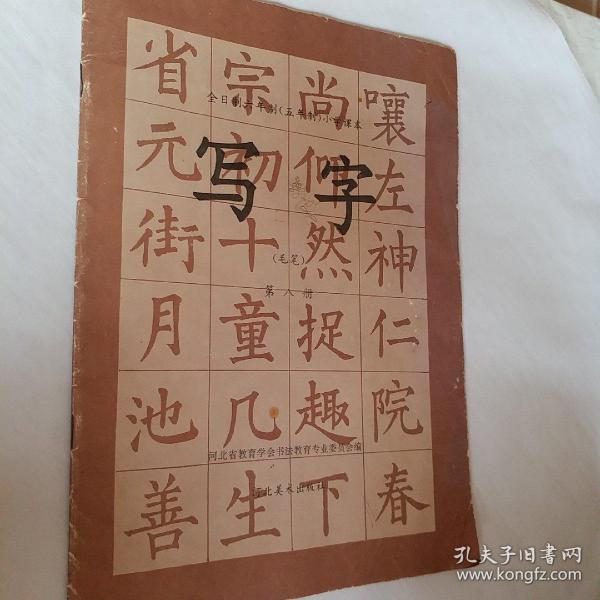 省宗尚嚷
全日制六年制(五年制)小学课本
元初何左
写字
街十然神
(毛笔)
第八册
月童捉仁
池几趣院
河北省教育学会书法教育专业委员会编
善生下春
河北美术出版社
孔夫子旧书网
www.kongfz.com